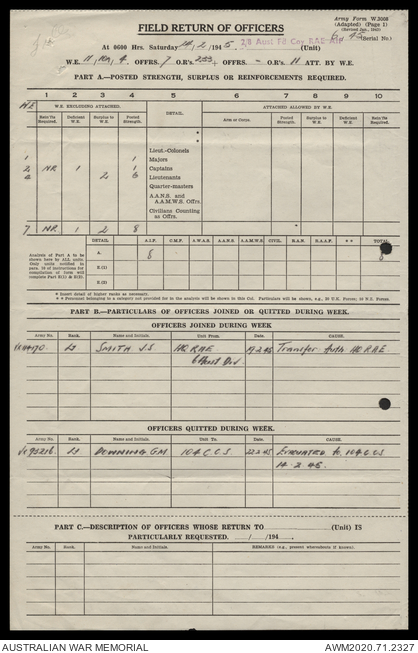 Army Form W.3008
(Adapted) (Page 1)
FIELD RETURN OF OFFICERS
At 0600 Hrs. Saturday 2/8 Aust Fd Coy RAE AIF (Unit)
(Serial No.)
W.E. OFFRS. 7 O.R's. 255 + OFFRS. - O.R's. 11 ATT. BY W.E.
PART A.—POSTED STRENGTH, SURPLUS OR REINFORCEMENTS REQUIRED.
WE
1 2 3 4 5 6 7 8 9 10
W.E. EXCLUDING ATTACHED. DETAIL. ATTACHED ALLOWED BY W.E.
Rein/No Required. Deficient W.E. Surplus to W.E. Posted Strength. Arm or Corps. Posted Strength. Surplus to W.E. Deficient W.E. Rein/No Required.
*
*
*
Lieut.-Colonels
1 1 Majors
2 NR 1 1 Captains
4 2 6 Lieutenants
Quarter-masters
A.A.N.S. and A.A.M.W.S. Offrs.
Civilians Counting as Offrs.
7 NR 1 2 8
DETAIL. A.I.F. C.M.F. A.W.A.S. A.A.N.S. A.A.M.W.S. CIVIL. R.A.N. R.A.A.F. * * TOTAL.
Analysis of Part A to be shown here by ALL units. Only units notified in para. 10 of instructions for compilation of form will complete Part B(1) & B(2).
A. 8 8
B.(1)
B.(2)
* Insert detail of higher ranks as necessary.
* * Personnel belonging to a category not provided for in the analysis will be shown in this Col. Particulars will be shown, e.g., 20 U.K. Forces; 10 N.Z. Forces.
PART B.—PARTICULARS OF OFFICERS JOINED OR QUITTED DURING WEEK.
OFFICERS JOINED DURING WEEK
Army No. Rank. Name and Initials. Unit From. Date. CAUSE.
Lt SMITH J.S. HQ RAE Transfer Auth HQ RAE
6 Aust Div
OFFICERS QUITTED DURING WEEK.
Army No. Rank. Name and Initials. Unit To. Date. CAUSE.
Lt DOWNING GM 104 C.C.S. Evacuated to 104 CCS
14.2.45.
PART C.—DESCRIPTION OF OFFICERS WHOSE RETURN TO (Unit) IS
PARTICULARLY REQUESTED. / /194
Army No. Rank. Name and Initials. REMARKS (e.g., present whereabouts if known).
AUSTRALIAN WAR MEMORIAL AWM2020.71.2327